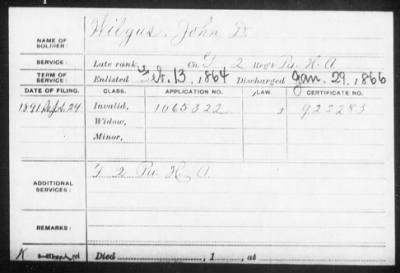 NAME OF SOLDIER: Wilgus, John D.
SERVICE: Late rank, Co. G 2 Reg't Pa. H. A.
TERM OF SERVICE: Enlisted 13, 1864 Discharged Jan. 29, 1866
DATE OF FILING. CLASS. APPLICATION NO. LAW. CERTIFICATE NO.
1891 24 Invalid, 1065322 922283
Widow,
Minor,
ADDITIONAL SERVICES: G 2 Pa. H. A.
REMARKS:
K Died , 1 , at